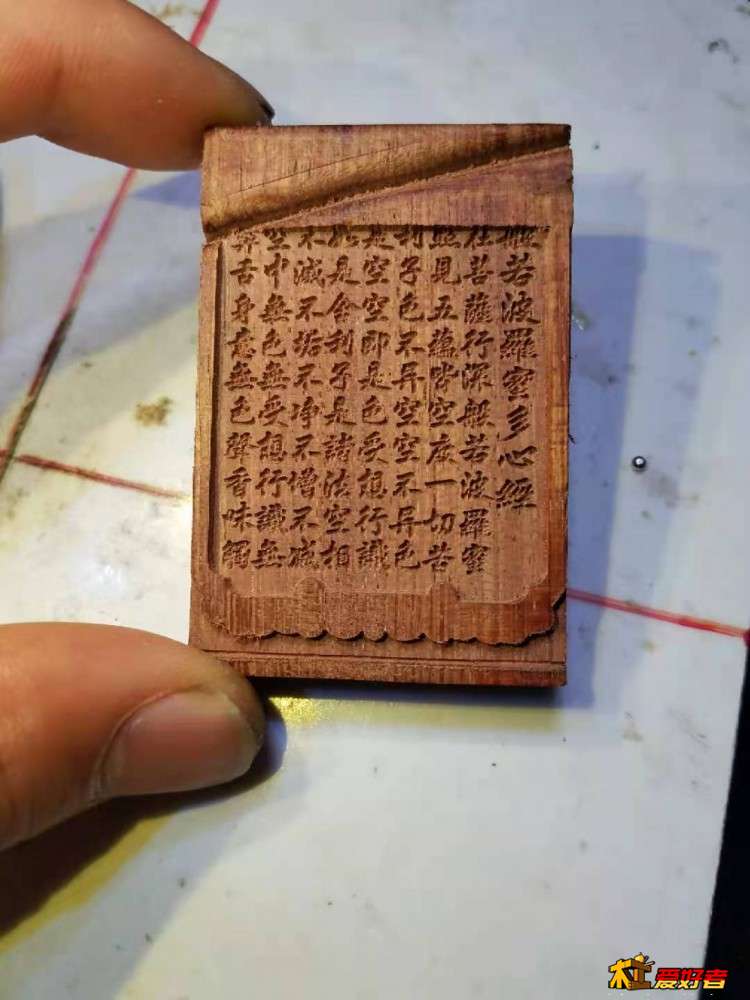 般若波羅蜜多心經
在菩薩行深般若波羅蜜
照見五蘊皆空度一切苦
利子色不异空空不异色
是空空即是色受想行識
如是舍利子是諸法空相
不滅不垢不净不增不减
空中無色無受想行識無
鼻舌身意無色聲香味觸
木工爱好者